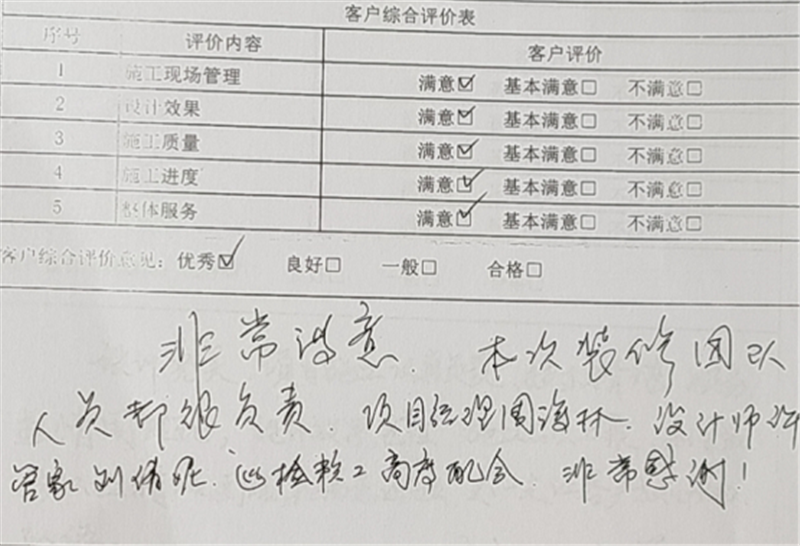 客户综合评价表
序号 评价内容 客户评价
1 施工现场管理 满意☑ 基本满意□ 不满意□
2 设计效果 满意☑ 基本满意□ 不满意□
3 施工质量 满意☑ 基本满意□ 不满意□
4 施工进度 满意☑ 基本满意□ 不满意□
5 整体服务 满意☑ 基本满意□ 不满意□
客户综合评价意见：优秀☑ 良好□ 一般□ 合格□
非常满意. 本次装修团队
人员都很负责. 项目经理周海林. 设计师许
管家刘倩 巡检 工高度配合. 非常感谢！